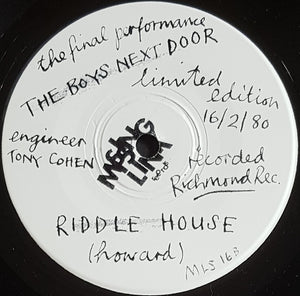 the final performance
THE BOYS NEXT DOOR
limited
edition
16/2/80
engineer
TONY COHEN
MISSING
LINK
recorded
Richmond Rec.
RIDDLE HOUSE
(howard)
MLS 16B